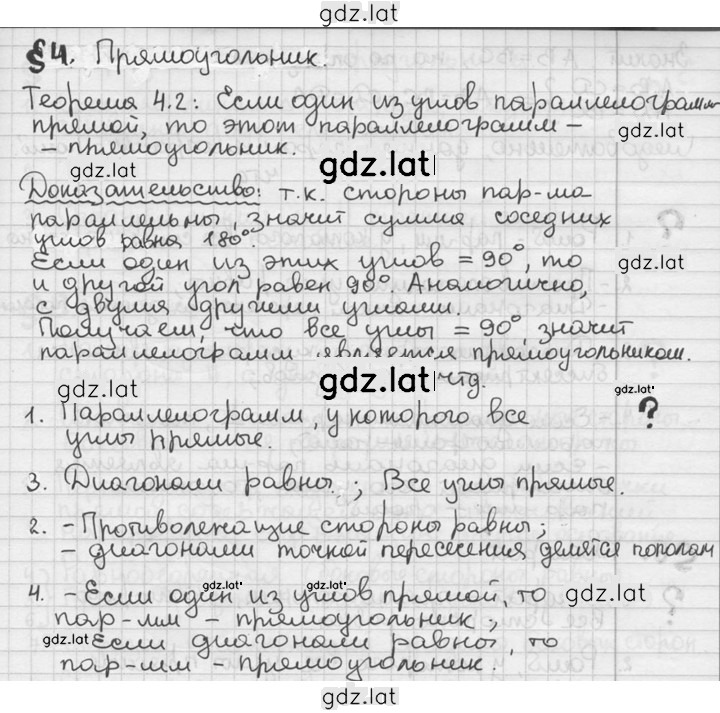 gdz.lat
§4. Прямоугольник.
Теорема 4.2: Если один из углов параллелограмм
прямой, то этот параллелограмм –
gdz.lat
– прямоугольник.
gdz.lat
gdz.lat
Доказательство: т.к. стороны пар-ма
параллельны, значит сумма соседних
углов равна 180°.
Если один из этих углов = 90°, то
gdz.lat
и другой угол равен 90°. Аналогично,
с двумя другими углами.
Получаем, что все углы = 90°, значит
параллелограмм является прямоугольником.
gdz.lat
gdz.lat
чтд.
gdz.lat
1. Параллелограмм, у которого все
?
углы прямые.
3. Диагонали равны.; Все углы прямые.
2. – Противолежащие стороны равны;
– диагонали точкой пересечения делятся пополам
gdz.lat
gdz.lat
4. – Если один из углов прямой, то
gdz.lat
пар-мм – прямоугольник;
gdz.lat
Если диагонали равны, то
gdz.lat
пар-мм – прямоугольник.
gdz.lat